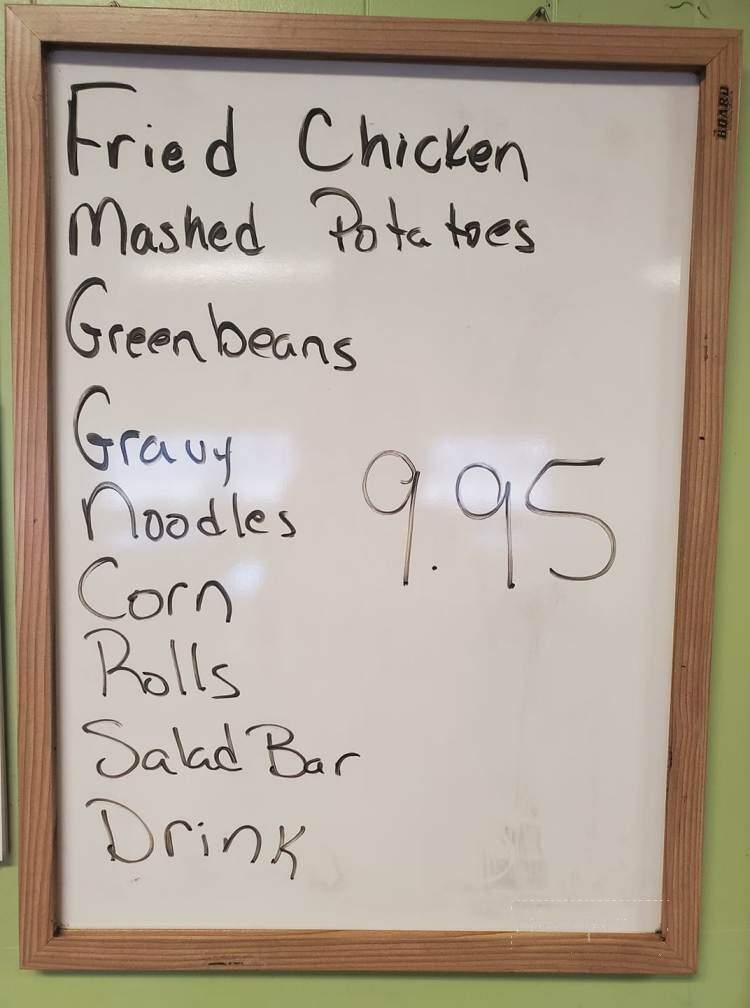 Fried Chicken
Mashed Potatoes
Greenbeans
Gravy
Noodles
9.95
Corn
Rolls
Salad Bar
Drink
BOARD